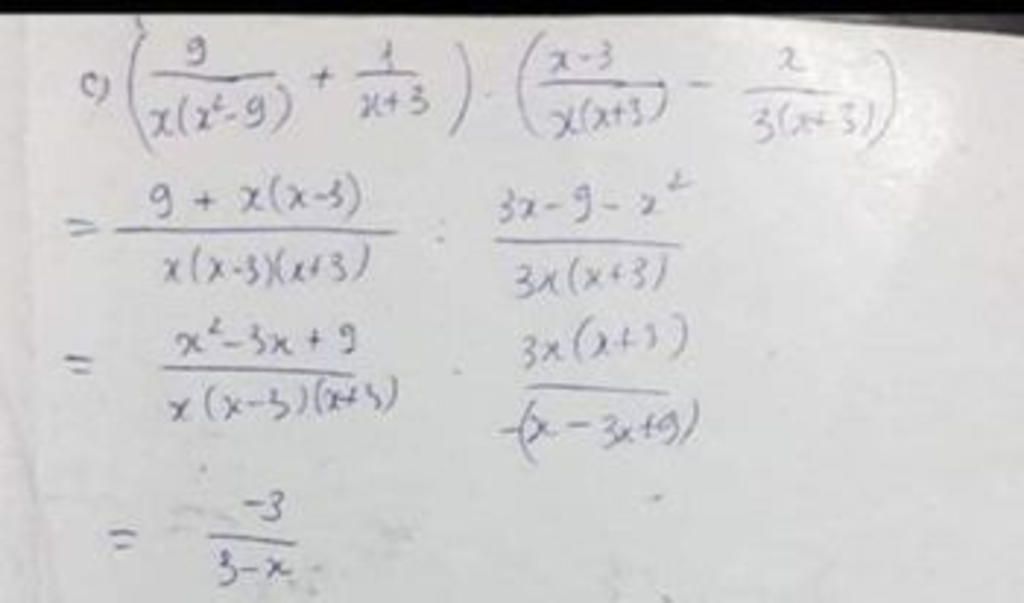 c) (9/(x(x²-9)) + 1/(x+3)) . ((x-3)/(x(x+3)) - x/(3(x+3)))
= (9 + x(x-3))/(x(x-3)(x+3)) : (3x-9-x²)/(3x(x+3))
= (x²-3x+9)/(x(x-3)(x+3)) . (3x(x+3))/(-(x-3x+9))
= -3/(3-x)